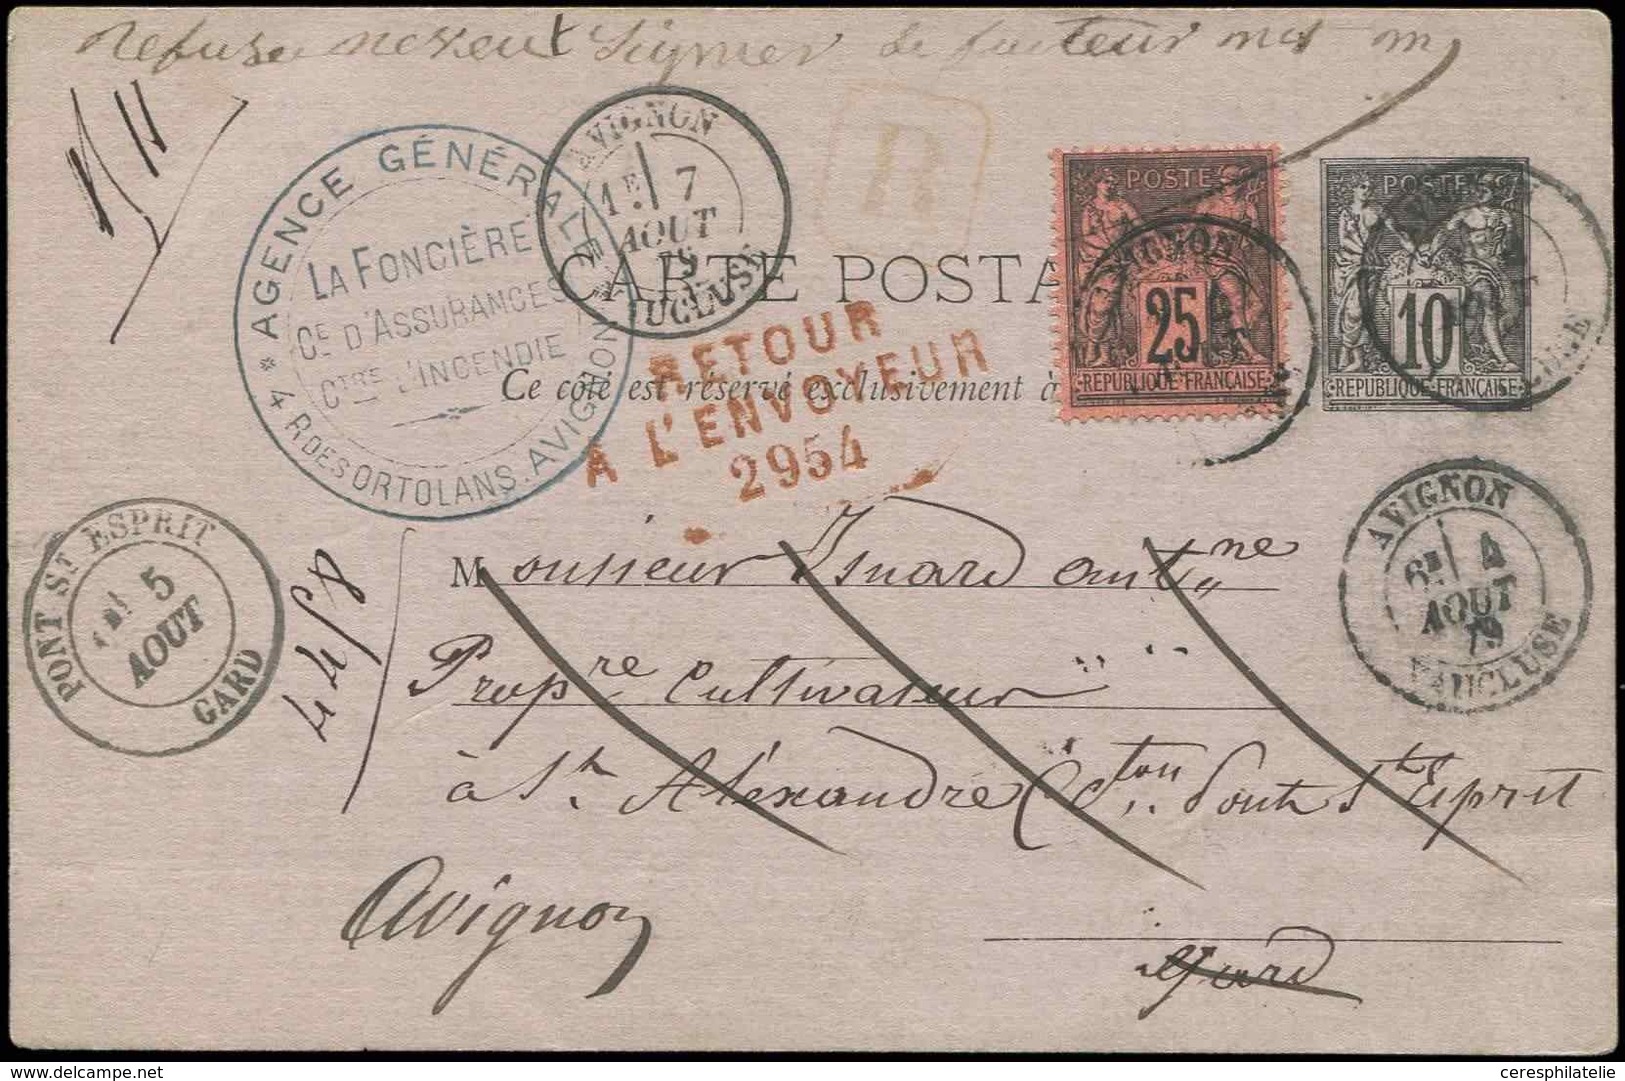 Refuse ne veut signer le facteur
AVIGNON
1E 7
AOUT
79
VAUCLUSE
R
* AGENCE GÉNÉRALE *
LA FONCIÈRE
CE D'ASSURANCES
CTRE L'INCENDIE
4 R DES ORTOLANS. AVIGNON
CARTE POSTA
POSTE
25
RÉPUBLIQUE FRANÇAISE
POSTES
10
RÉPUBLIQUE FRANÇAISE
RETOUR
A L'ENVOYEUR
2954
Ce côté est réservé exclusivement à
AVIGNON
6E 4
AOUT
79
VAUCLUSE
PONT ST ESPRIT
5
AOUT
GARD
Monsieur Isnard antne
Propre Cultivateur
à St. Alexandre Cton Pont St Esprit
Avignon
Gard
ceresphilatelie